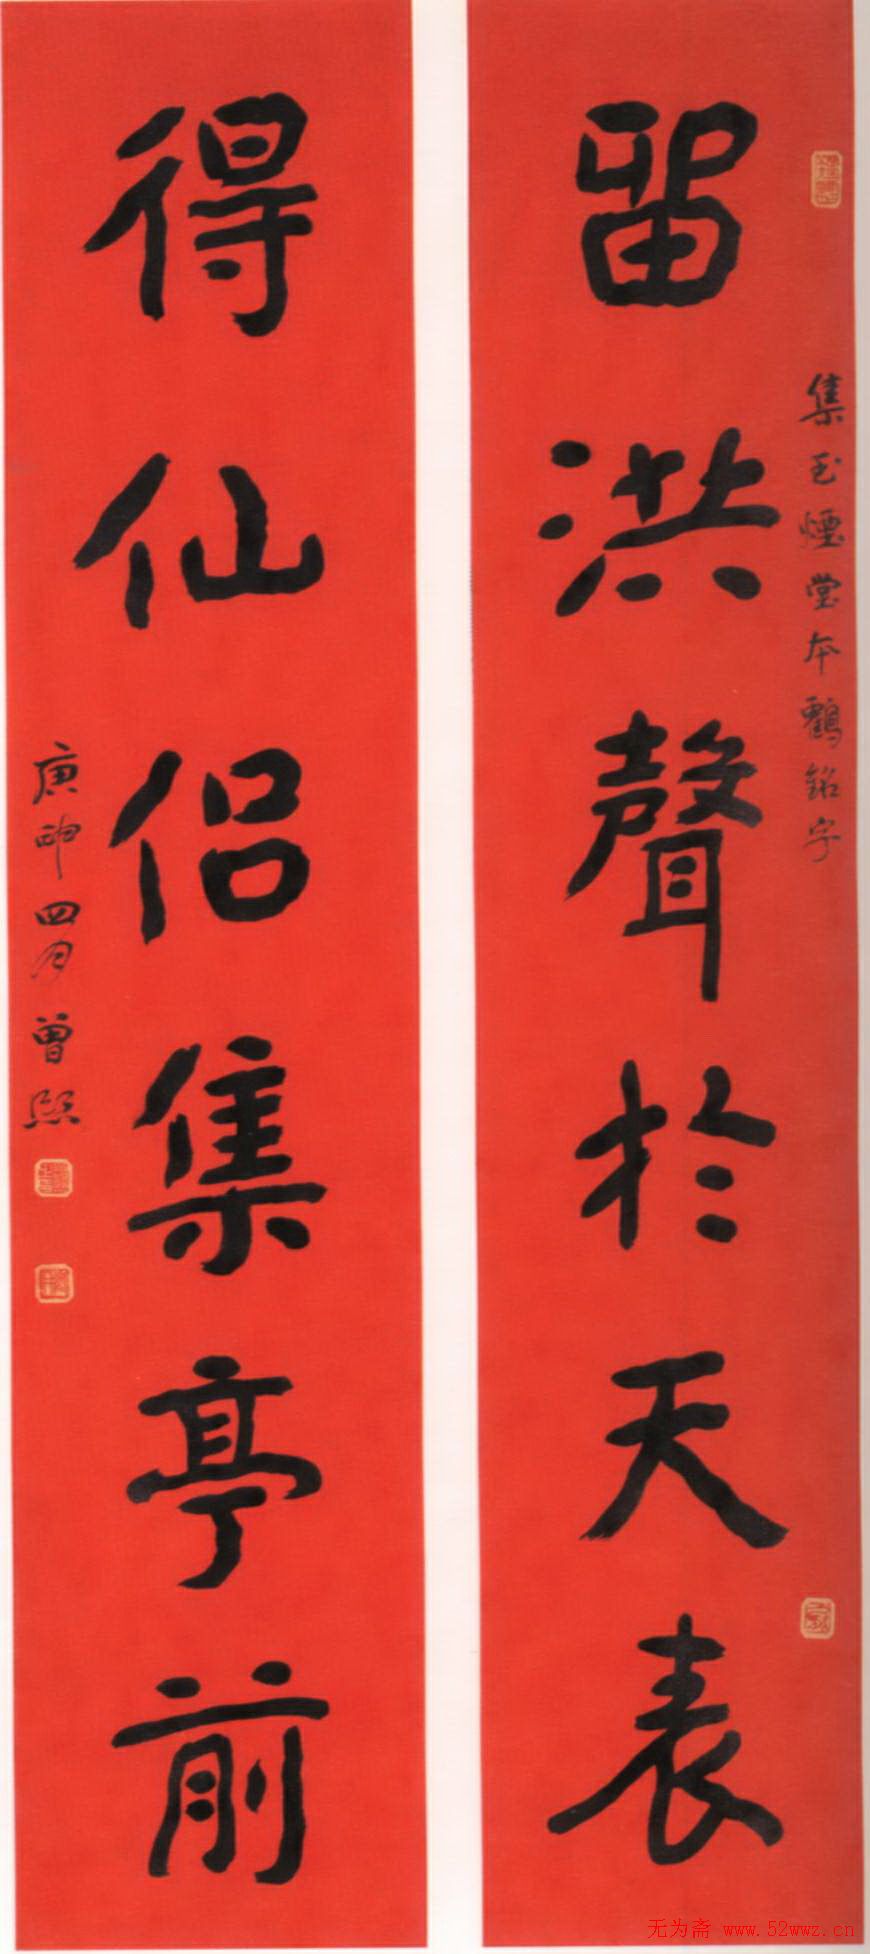 留洪聲於天表
集玉煙堂本鶴銘字
得仙侶集亭前
庚申四月曾熙
无为斋 www.52wwz.cn